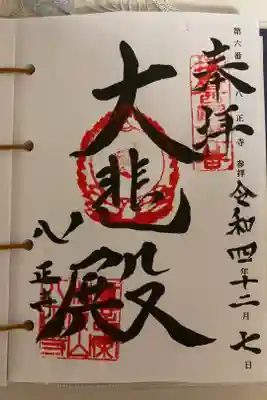 第六番 八正寺 参拝 令和四年十二月七日
奉拝
大悲殿
八正寺